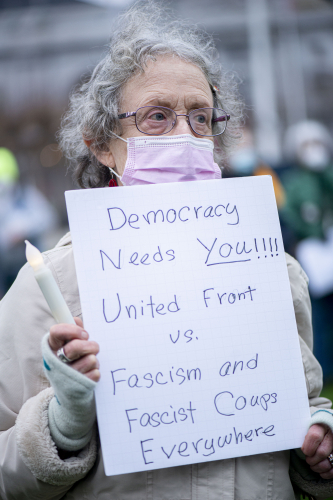 Democracy
Needs You!!!!
United Front
vs.
Fascism and
Fascist Coups
Everywhere